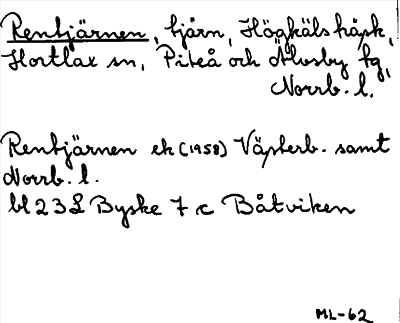 Rentjärnen, tjärn, Högkäls kåpk,
Hortlax sn, Piteå och Älvsby fg,
Norrb. l.
Rentjärnen ek (1958) Västerb. samt
Norrb. l.
bl 23 L Byske 7 c Båtviken
ML-62